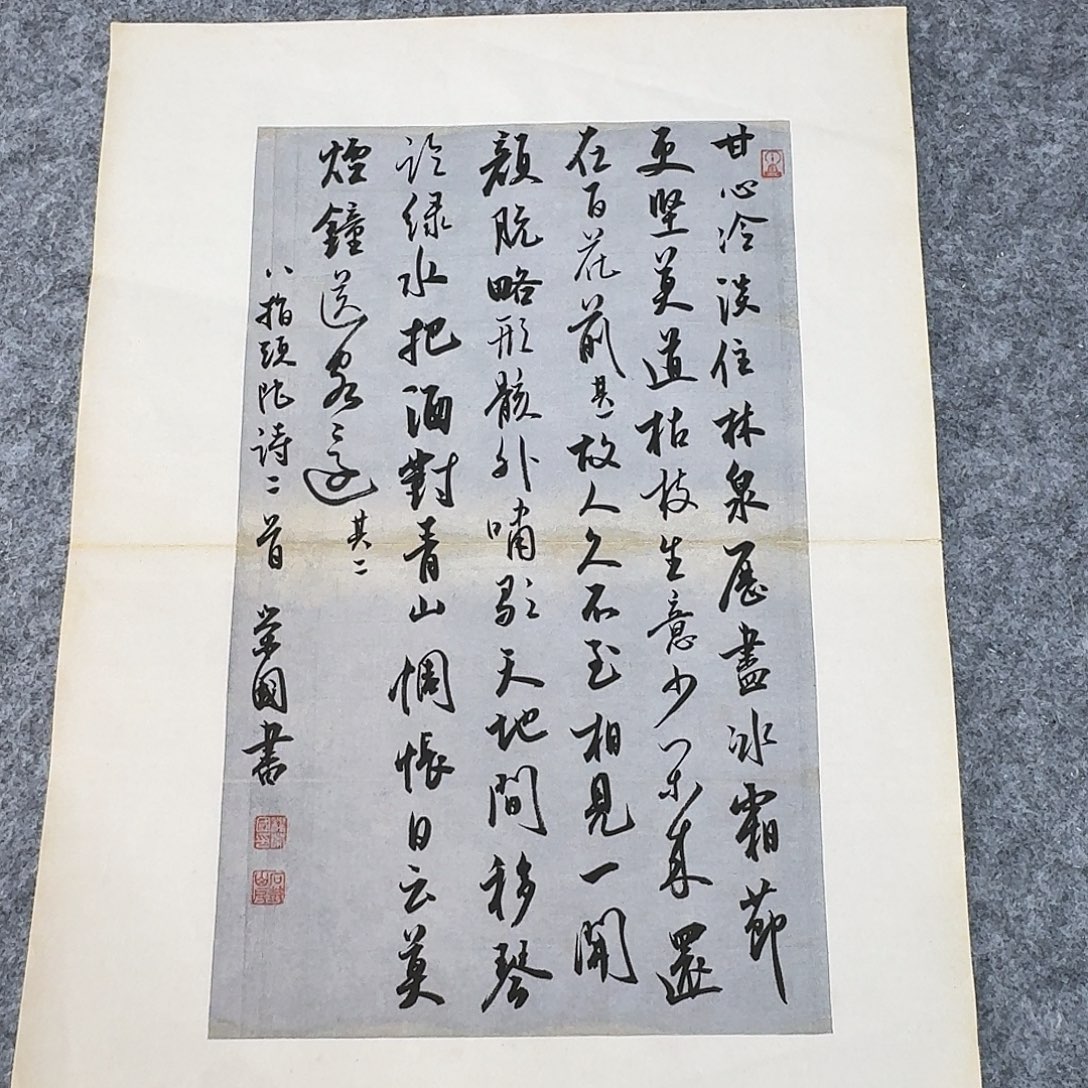 甘心冷淡住林泉歷盡冰霜節
更堅莫道枯枝生意少開來還
在百花前其一故人久不至相見一開
顏脫略形骸外嘯歌天地間移琴
臨綠水把酒對青山惆悵日云莫
煙鐘送客還其二
八指頭陀詩二首 榮國書